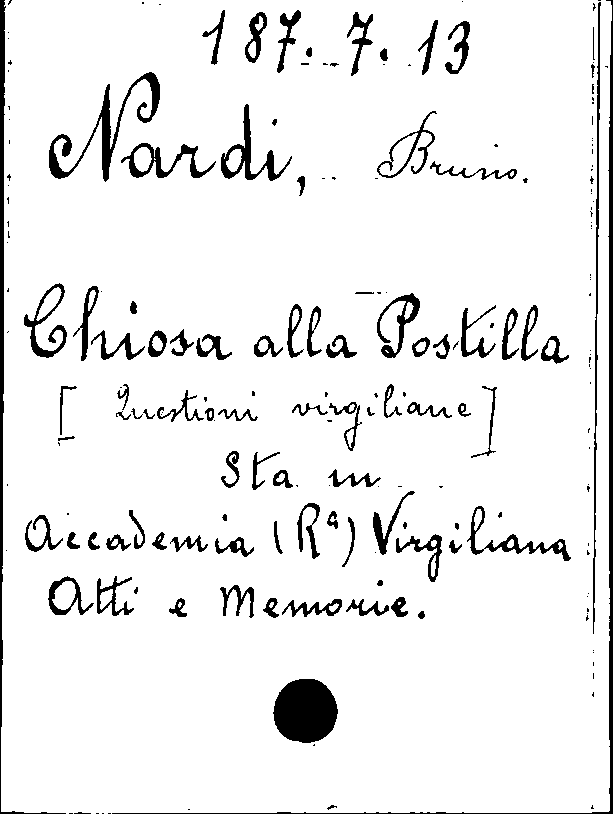 187. 7. 13
Nardi, Bruno.
Chiosa alla Postilla
[Questioni virgiliane]
Sta in
Accademia (Rª) Virgiliana
Atti e Memorie.